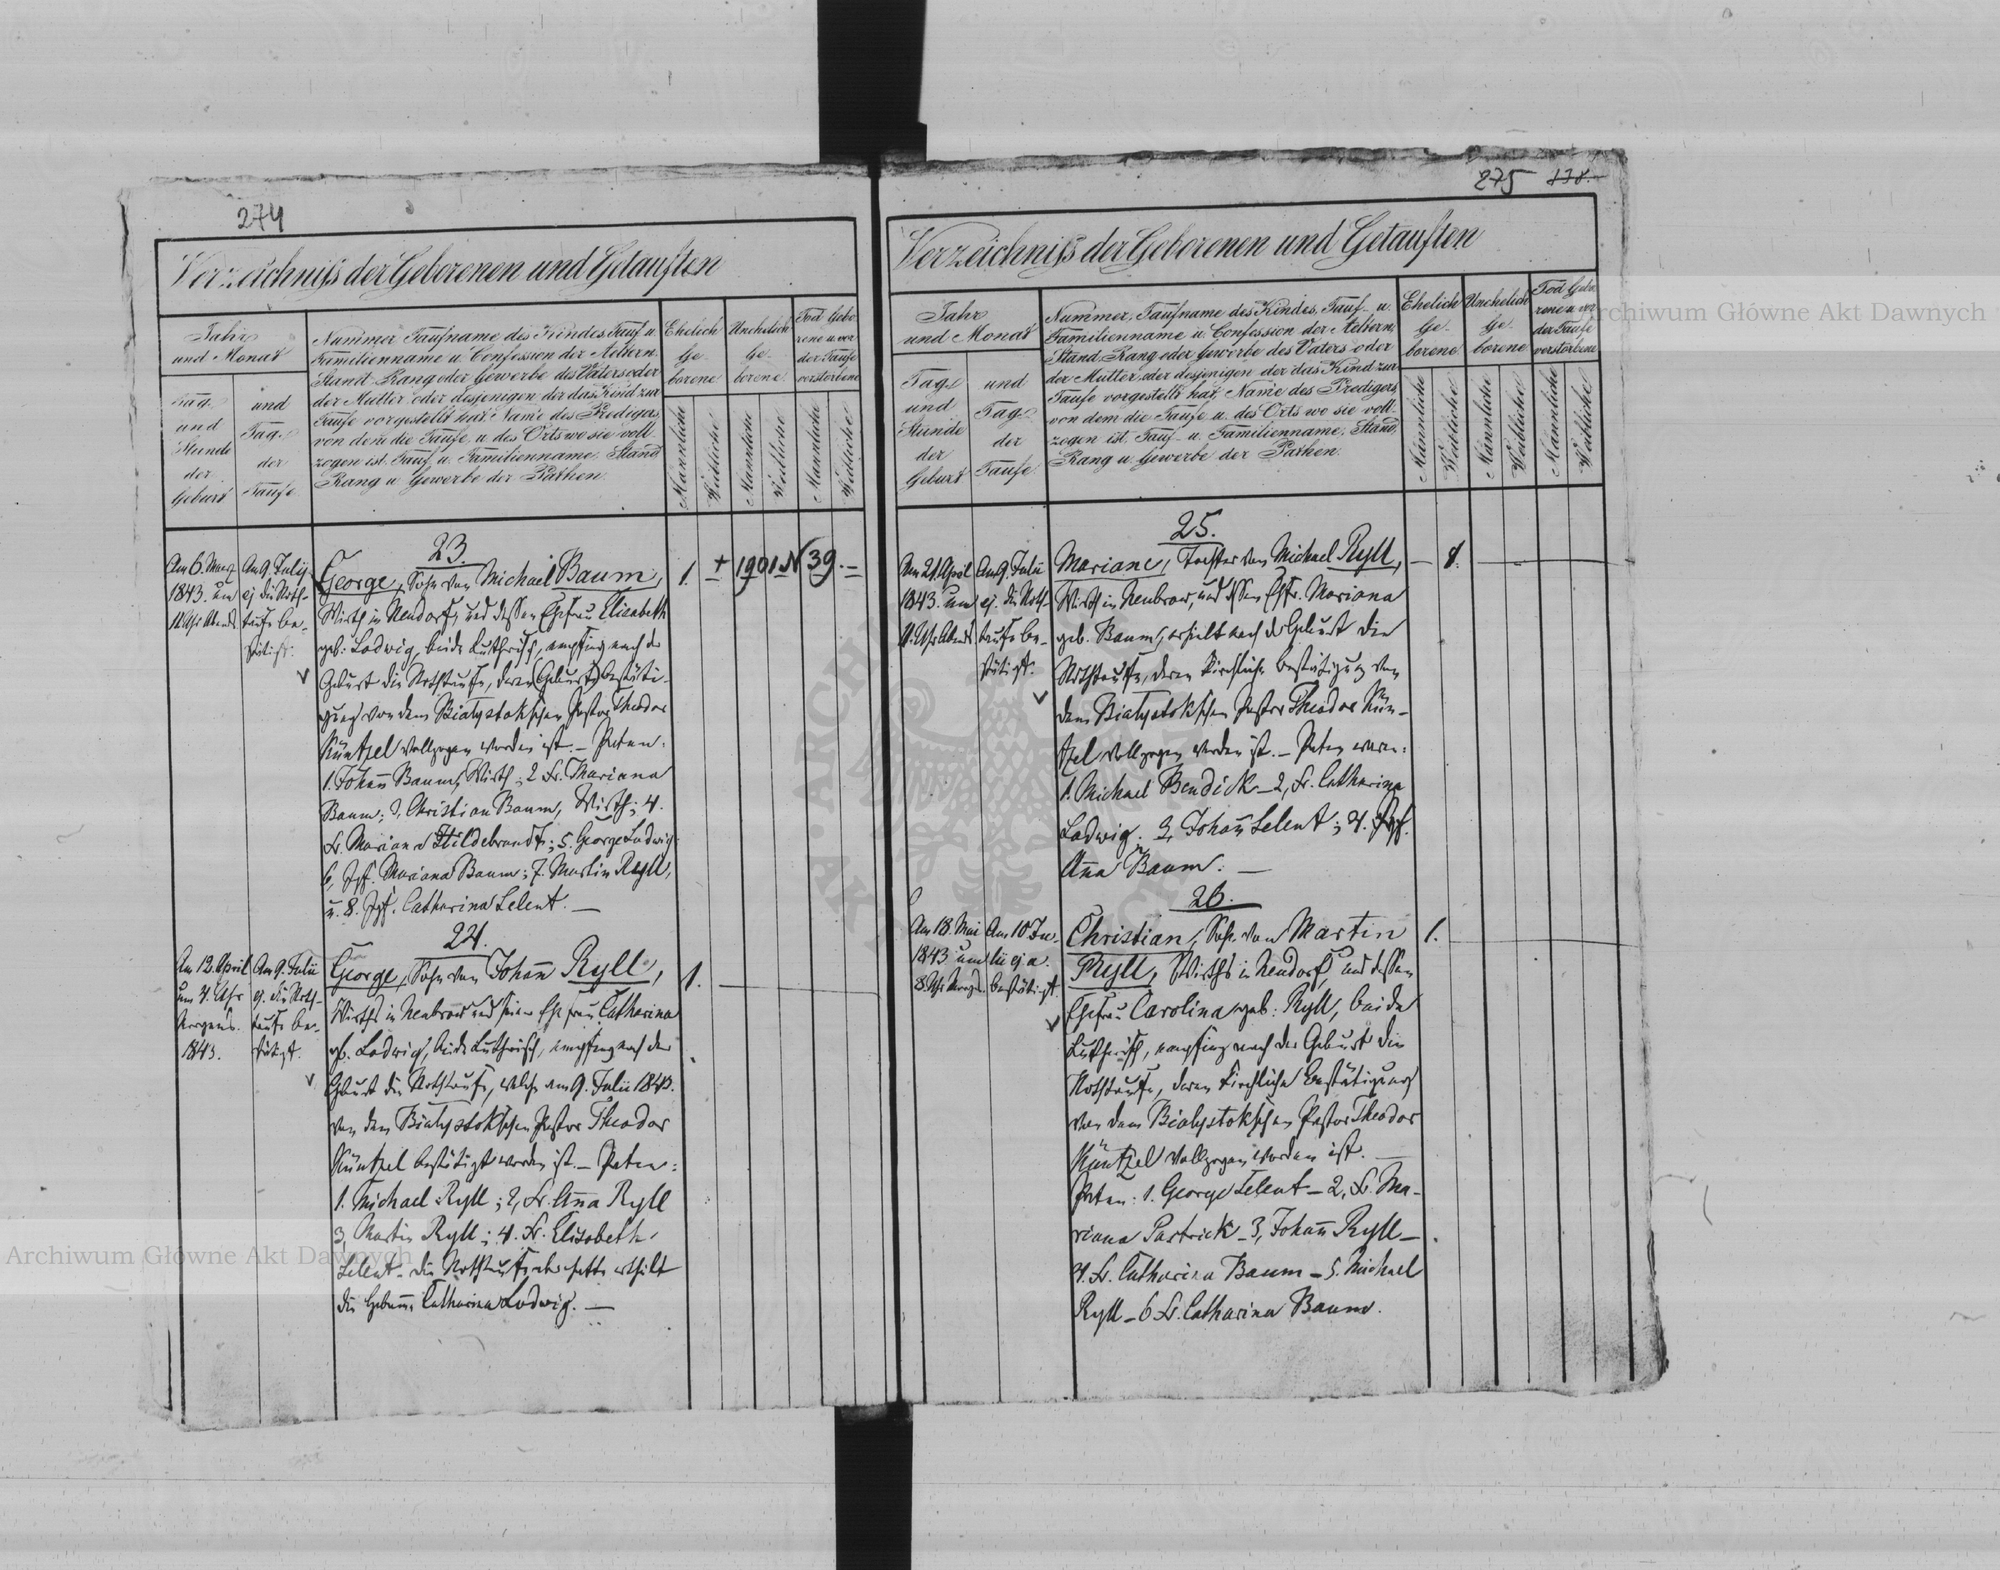 274
Verzeichniss der Geborenen und Getauften
Jahr
und Monat
Tag
und
Stunde
der
Geburt
und
Tag
der
Taufe
Nummer Taufname des Kindes Tauf u.
Familienname u Confession der Aeltern.
Stand Rang oder Gewerbe des Vaters oder
der Mutter oder desjenigen der das Kind zur
Taufe vorgestellt hat. Name des Predigers
von dem die Taufe u des Orts wo sie voll-
zogen ist. Tauf u. Familienname. Stand
Rang u Gewerbe der Pathen.
Ehelich
Ge-
borene
Unehelich
Ge-
borene
Tod Gebo
rene u. vor
der Taufe
verstorbene
Männliche
Weibliche
Männliche
Weibliche
Männliche
Weibliche
Am 6. Maerz
1843. um
Uhr Abends
Am 9. Julij
ej. die Noth-
taufe be-
stätigt.
23.
George, Sohn von Michael Baum,
Wirth in Neudorf, und dessen Ehefrau Elisabeth
geb. Ludwig, beide Lutherisch, empfing nach der
Geburt die Nothtaufe, deren (Geburts) bestäti-
gung von dem Bialystokschen Pastor Theodor
Küntzel vollzogen worden ist. – Paten:
1. Johann Baum, Wirth; 2 Fr. Mariana
Baum; 3, Christian Baum, Wirth; 4.
Fr. Mariana Hildebrandt; 5. George Ludwig
6, Jgf. Mariana Baum; 7. Martin Ryll,
u. 8. Jgf. Catharina Lelent. —
1. + 1901 N 39.
Am 12. April
um 4. Uhr
Morgens.
1843.
Am 9. Julii
ej. die Noth-
taufe be-
stätigt.
24.
George, Sohn von Johann Ryll,
Wirths in Neubrow und seiner Ehefrau Catharina
gb. Ludwig, beide Lutherisch, empfing nach der
Geburt die Nothtaufe, welche am 9. Julii 1843.
von dem Bialystokschen Pastor Theodor
Küntzel bestätigt worden ist. – Paten:
1. Michael Ryll; 2, Fr. Anna Ryll
3, Martin Ryll; 4. Fr. Elisabeth
Lelent – die Nothtaufe aber hatte ertheilt
die Hebamme Catharina Ludwig. —
1.
275 138.
Verzeichniss der Geborenen und Getauften
Jahr
und Monat
Tag
und
Stunde
der
Geburt
und
Tag
der
Taufe
Nummer, Taufname des Kindes, Tauf- u.
Familienname u Confession der Aeltern,
Stand, Rang oder Gewerbe des Vaters oder
der Mutter, oder desjenigen der das Kind zur
Taufe vorgestellt hat; Name des Predigers
von dem die Taufe u. des Orts wo sie voll-
zogen ist. Tauf- u. Familienname, Stand,
Rang u Gewerbe der Pathen.
Ehelich
Ge-
borene
Unehelich
Ge-
borene
Tod Gebo
rene u. vor
der Taufe
verstorbene
Männliche
Weibliche
Männliche
Weibliche
Männliche
Weibliche
Am 21. April
1843. um
Uhr Abends
Am 9. Julii
ej. die Noth-
taufe be-
stätigt.
25.
Mariane, Tochter von Michael Ryll,
Wirth in Neubrow, und dessen Ehfr. Mariana
geb. Baum, erhielt nach der Geburt die
Nothtaufe, deren kirchliche Bestätigung von
dem Bialystokschen Pastor Theodor Kün-
tzel vollzogen worden ist. – Paten waren:
1. Michael Bendick – 2, Fr. Catharina
Ludwig. 3, Johann Lelent; 4. Jgf.
Anna Baum. —
1.
Am 18. Mai
1843 um
8. Uhr Morgs.
Am 10 Ju-
lii ej a.
bestätigt.
26.
Christian, Sohn von Martin
Ryll, Wirths in Neudorf, und dessen
Ehefrau Carolina geb: Ryll, beide
Lutherisch, empfing nach der Geburt die
Nothtaufe, deren kirchliche Bestätigung
von dem Bialystokschen Pastor Theodor
Küntzel vollzogen worden ist. —
Paten: 1. George Lelent – 2, Fr. Ma-
riana Pastrick – 3, Johann Ryll –
4. Fr. Catharina Baum – 5. Michael
Ryll – 6 Fr. Catharina Baum.
1.
Archiwum Główne Akt Dawnych
Archiwum Główne Akt Dawnych